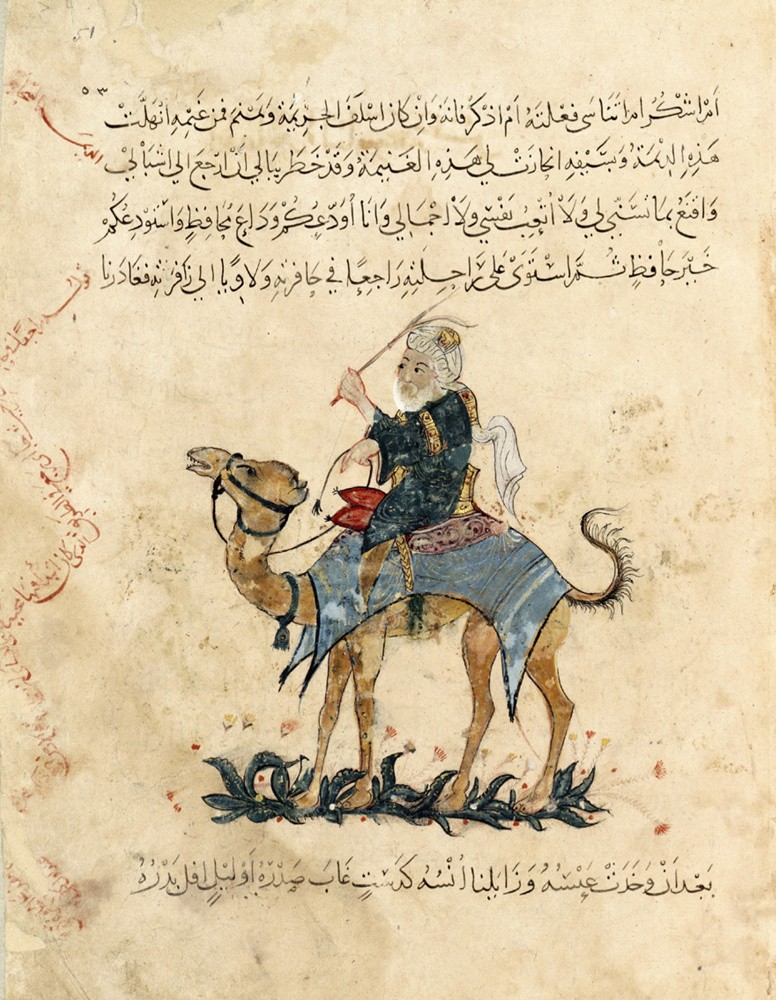 51
٥٣
أم اشكر ام اتناسى فعلته أم اذكر فانه وان كان اسلف الجريمة ونمنم فمن غيمه انهلت
هذه الديمة وبسيفه انحازت لي هذه الغنيمة وقد خطر ببالي أن ارجع الى اشبالي
واقنع بما تسنى لي ولا أتعب نفسي ولا اجمالي وانا أودعكم وداع محافظ واستودعكم
خير حافظ ثم استوى على راحلته راجعا في حافرته ولاويا الى زافرته فغادرنا
بعد ان وخدت عنسه وزايلنا انسه كدست غاب صدره أو ليل افل بدره